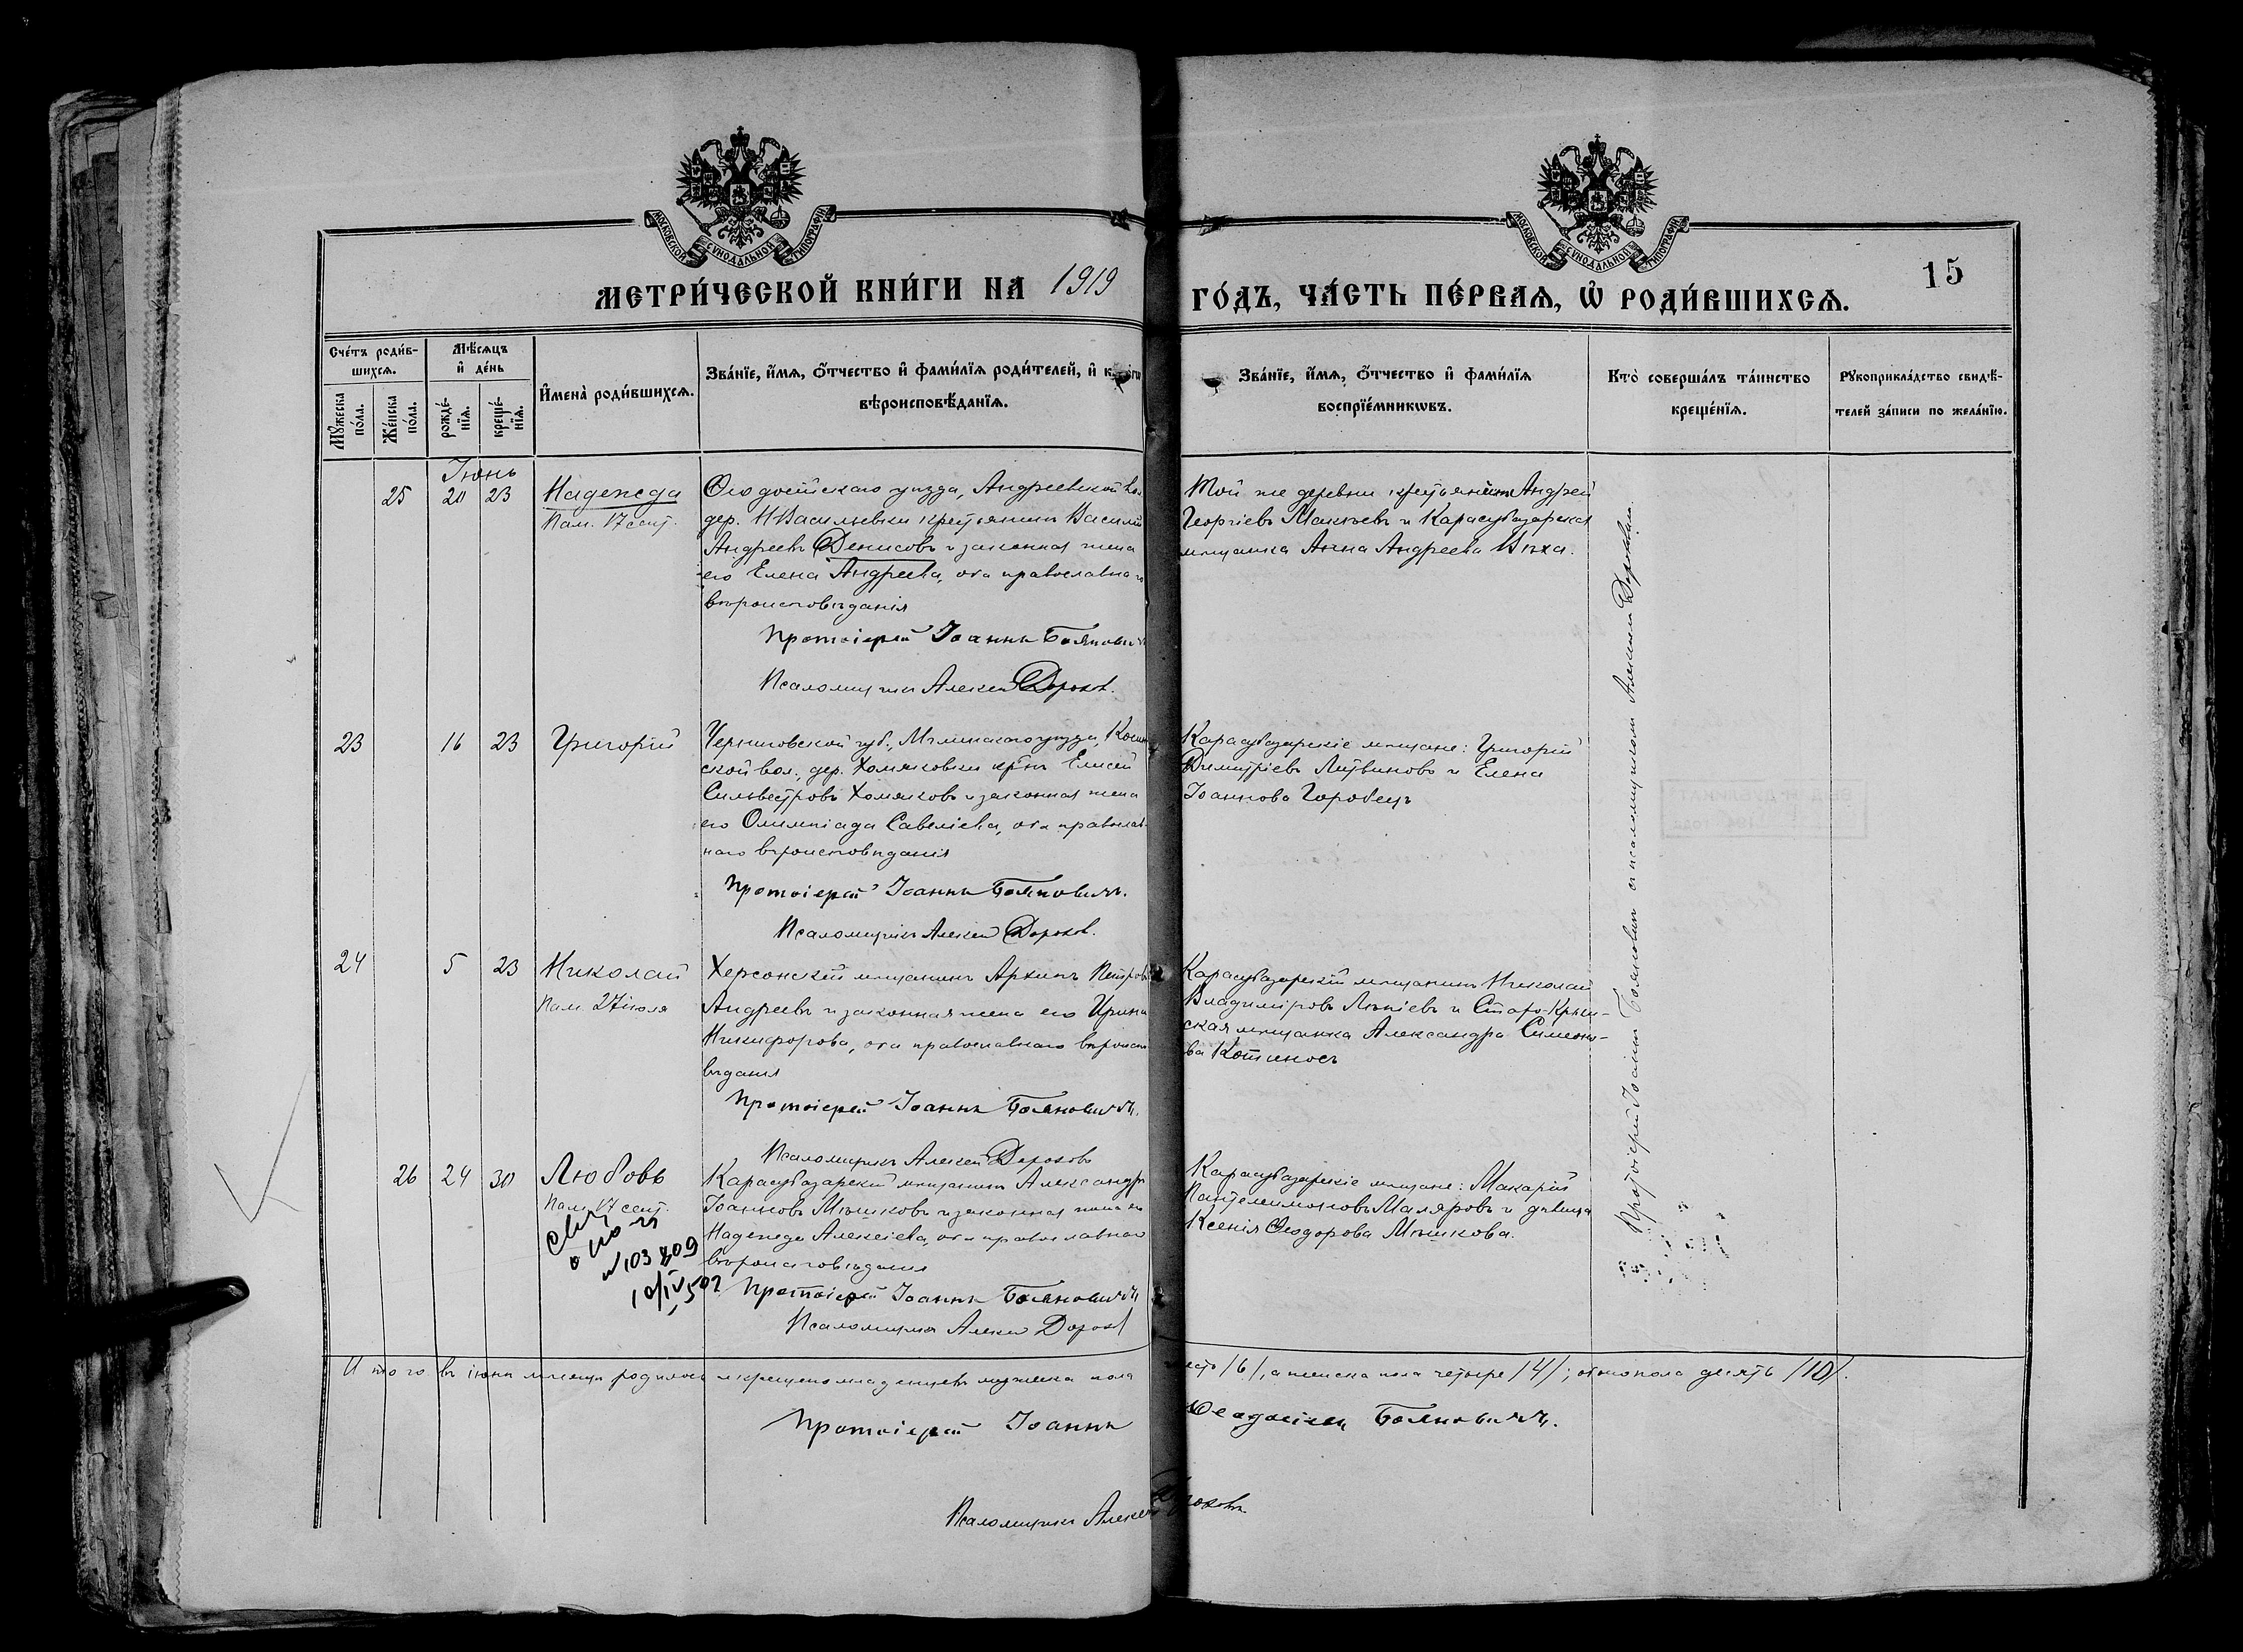 МОСКОВСКОЙ СѴНОДАЛЬНОЙ ТИПОГРАФІИ
МОСКОВСКОЙ СѴНОДАЛЬНОЙ ТИПОГРАФІИ
МЕТРИ́ЧЕСКОЙ КНИ́ГИ НА 1919 ГО́ДЪ, ЧА́СТЬ ПЕ́РВАѦ, Ѡ҆ РОДИ́ВШИХСѦ.
15
Сче́тъ роди́в-
шихсѧ.
Мꙋ́жеска по́ла.
Же́нска по́ла.
Мѣ́сѧцъ
и҆ де́нь
рожде́-
нїѧ.
креще́-
нїѧ.
И҆мена̀ роди́вшихсѧ.
Зва́нїе, и҆́мѧ, ѻ҆́тчество и҆ фами́лїѧ роди́телей, и҆
вѣроисповѣ́данїѧ.
Зва́нїе, и҆́мѧ, ѻ҆́тчество и҆ фами́лїѧ
воспрїе́мникѡвъ.
Кто̀ соверша́лъ та́инство
креще́нїѧ.
Рꙋкоприкла́дство свидѣ́-
телей за́писи по жела́нїю.
Іюнь
25 20 23 Надежда
Пам. 17 сент.
Ѳеодосійскаго уѣзда, Андреевской вол.
дер. Н Васильевки крестьянинъ Василій
Андреевъ Денисовъ и законная жена
его Елена Андреева, оба православна
вѣроисповѣданія
Протоіерей Іоаннъ Бояновичъ
Псаломщикъ Алексей Дорохов.
Той же деревни крестьянинъ Андрей
Георгіевъ и Карасубазарская
мѣщанка Анна Андреева
23 16 23 Григорій
Черниговской губ., Мглинскаго уѣзда,
ской вол., дер. Хомяковки кр-нъ Елисей
Сильвестровъ Хомяковъ и законная жена
его Олимпіада Савеліева, оба православ-
наго вѣроисповѣданія
Протоіерей Іоаннъ Бояновичъ.
Псаломщикъ Алексей Дорохов.
Карасубазарскіе мѣщане: Григорій
Димитріевъ Литвиновъ и Елена
Іоаннова Горобецъ
24 5 23 Николай
Пам. 27 іюля
Херсонскій мѣщанинъ Архипъ Петровъ
Андреевъ и законная жена его Ирина
Никифорова, оба православнаго вѣроиспо
вѣданія
Протоіерей Іоаннъ Бояновичъ.
Псаломщикъ Алексей Дороховъ
Карасубазарскій мѣщанинъ Николай
Владиміровъ и Старо-Крым-
ская мѣщанка Александра Симеоно-
ва
26 24 30 Любовь
Пам. 17 сент.
№ 103809
Карасубазарскій мѣщанинъ Александръ
Іоанновъ Мѣшковъ и законная жена его
Надежда Алексіева, оба православнаго
вѣроисповѣданія
Протоіерей Іоаннъ Бояновичъ
Псаломщикъ Алексей Дорохов
Карасубазарскіе мѣщане: Макарій
Пантелеимоновъ Маляровъ и дѣвица
Ксенія Ѳеодорова Мѣшкова.
Протоіерей Іоаннъ Бояновичъ съ псаломщикомъ Алексіемъ Дороховымъ.
Итого въ іюнѣ мѣсяцѣ родилось и крещено младенцевъ мужеска пола есть /6/, а женска пола четыре /4/; обоего пола десять /10/.
Протоіерей Іоаннъ Бояновичъ.
Псаломщикъ Алексей Дороховъ